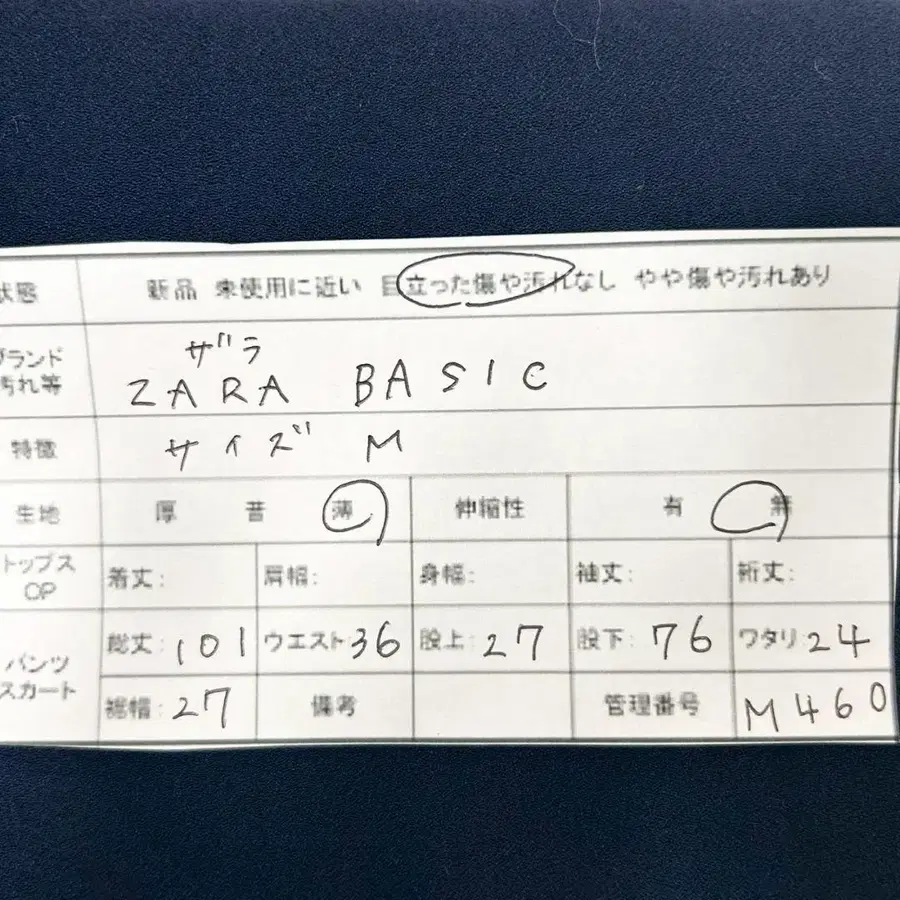 状態 新品 未使用に近い 目立った傷や汚れなし やや傷や汚れあり
ブランド 汚れ等 ザラ
ZARA BASIC
特徴 サイズ M
生地 厚 普 薄 伸縮性 有 無
トップス OP 着丈: 肩幅: 身幅: 袖丈: 裄丈:
パンツ スカート 総丈: 101 ウエスト: 36 股上: 27 股下: 76 ワタリ: 24
裾幅: 27 備考 管理番号 M460